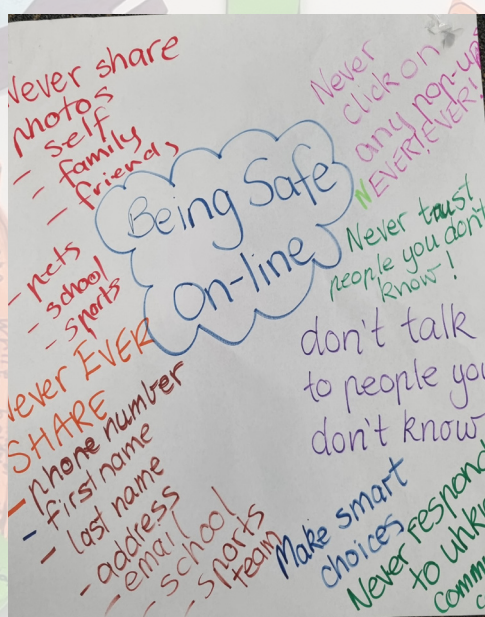 Being Safe
On-line
Never share
photos
- self
- family
- friends
- pets
- school
- sports
Never EVER
SHARE
- phone number
- first name
- last name
- address
- email
- school
- sports
team
Never
click on
any pop-ups
NEVER!EVER!
Never trust
people you don't
know!
don't talk
to people you
don't know
Make smart
choices
Never respond
to